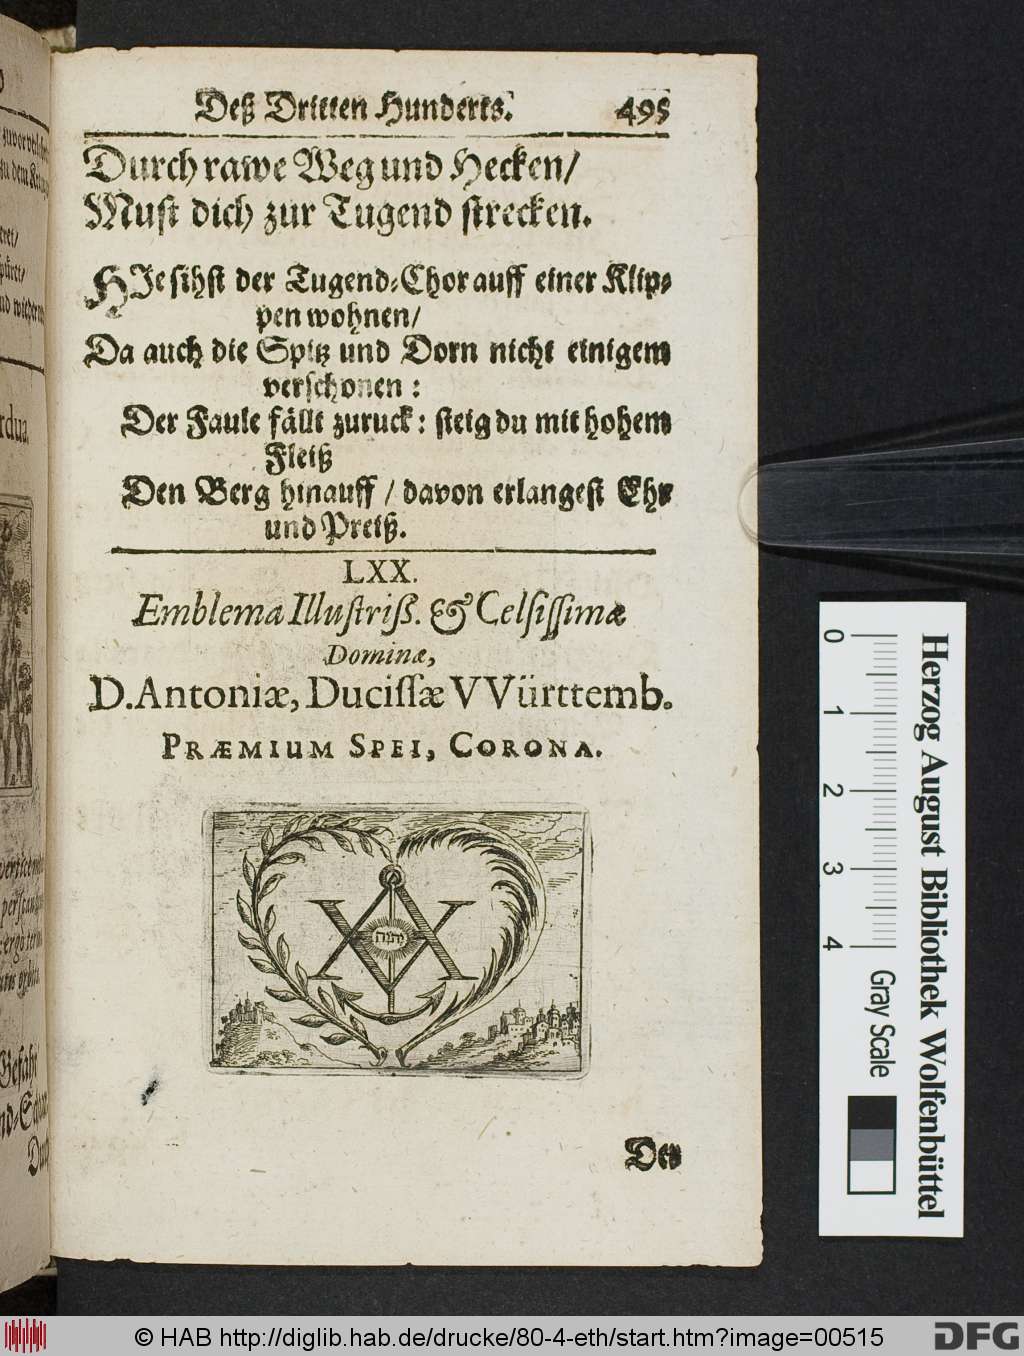 Deß Dritten Hunderts. 495
Durch rawe Weg und Hecken/
Must dich zur Tugend strecken.
HJe sihst der Tugend-Chor auff einer Klip-
pen wohnen/
Da auch die Spitz und Dorn nicht einigem
verschonen:
Der Faule fällt zuruck: steig du mit hohem
Fleiß
Den Berg hinauff / davon erlangest Ehr
und Preiß.
LXX.
Emblema Illustriß. & Celsissimæ
Dominæ,
D. Antoniæ, Ducissæ VVürttemb.
PRÆMIUM SPEI, CORONA.
יהוה
Der
0 1 2 3 4
Gray Scale
Herzog August Bibliothek Wolfenbüttel
© HAB http://diglib.hab.de/drucke/80-4-eth/start.htm?image=00515
DFG